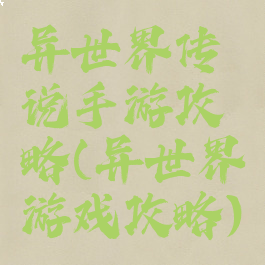 异世界传
说手游攻
略(异世界
游戏攻略)